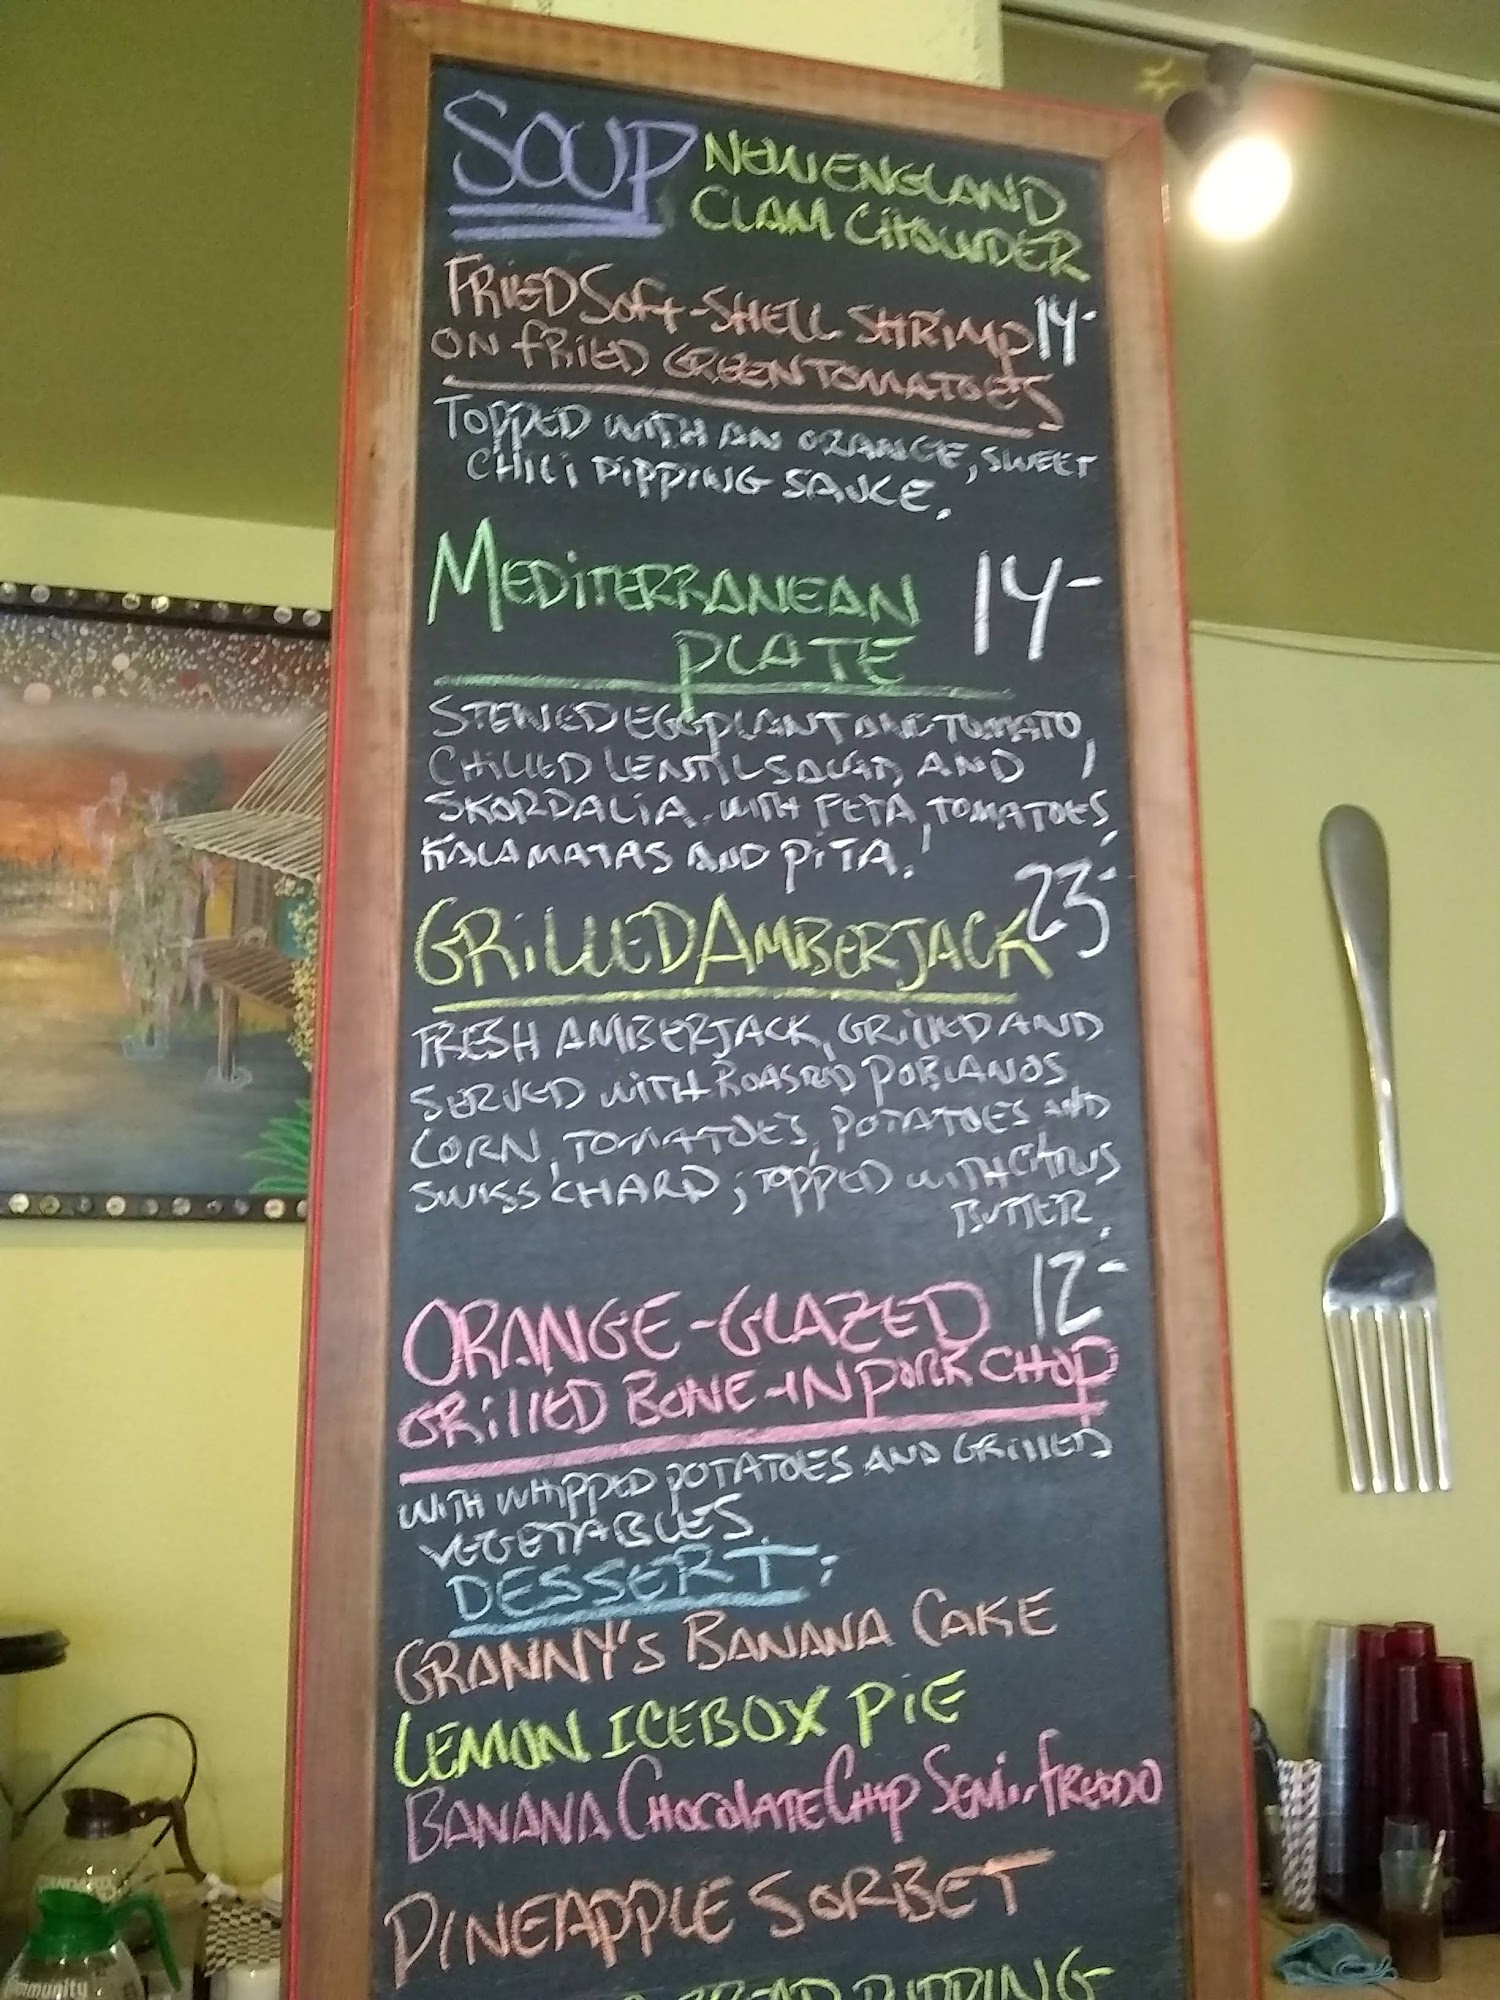 SOUP NEW ENGLAND
CLAM CHOWDER
FRIED SOFT-SHELL SHRIMP 14-
ON FRIED GREEN TOMATOES
TOPPED WITH AN ORANGE, SWEET
CHILI DIPPING SAUCE.
MEDITERRANEAN 14-
PLATE
STEWED EGGPLANT AND TOMATO,
CHILLED LENTIL SALAD, AND
SKORDALIA. WITH FETA, TOMATOES,
KALAMATAS AND PITA.
GRILLED AMBERJACK 23-
FRESH AMBERJACK, GRILLED AND
SERVED WITH ROASTED POBLANOS
CORN, TOMATOES, POTATOES AND
SWISS CHARD; TOPPED WITH CITRUS
BUTTER.
ORANGE-GLAZED 12-
GRILLED BONE-IN PORK CHOP
WITH WHIPPED POTATOES AND GRILLED
VEGETABLES.
DESSERT:
GRANNY'S BANANA CAKE
LEMON ICEBOX PIE
BANANA CHOCOLATE CHIP SEMI-FREDDO
PINEAPPLE SORBET
BREAD PUDDING
Community